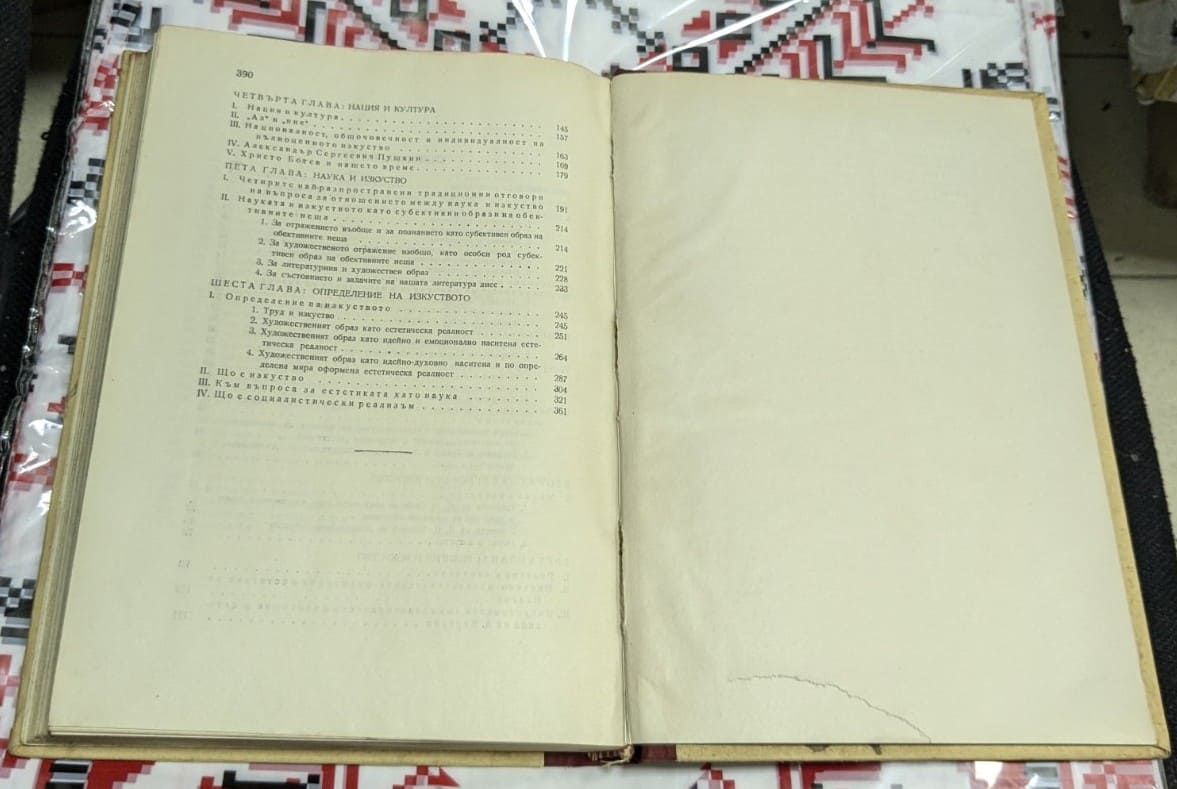 390
ЧЕТВЪРТА ГЛАВА: НАЦИЯ И КУЛТУРА
I. Нация и култура . . . 145
II. „Аз“ и „ние“ . . . 157
III. Националност, общочовечност и индивидуалност на
пълноценното изкуство . . . 163
IV. Александър Сергеевич Пушкин . . . 169
V. Христо Ботев и нашето време . . . 179
ПЕТА ГЛАВА: НАУКА И ИЗКУСТВО
I. Четирите най-разпространени традиционни отговори
на въпроса за отношението между наука и изкуство 191
II. Науката и изкуството като субективни образи на обек-
тивните неща . . . 214
1. За отражението въобще и за познанието като субективен образ на
обективните неща . . . 214
2. За художественото отражение изобщо, като особен род субек-
тивен образ на обективните неща . . . 221
3. За литературния и художествен образ . . . 228
4. За състоянието и задачите на нашата литература днес . . . 233
ШЕСТА ГЛАВА: ОПРЕДЕЛЕНИЕ НА ИЗКУСТВОТО
I. Определение на изкуството . . . 245
1. Труд и изкуство . . . 245
2. Художественият образ като естетическа реалност . . . 251
3. Художественият образ като идейно и емоционално наситена есте-
тическа реалност . . . 264
4. Художественият образ като идейно-духовно наситена и по опре-
делена мяра оформена естетическа реалност . . . 287
II. Що е изкуство . . . 304
III. Към въпроса за естетиката като наука . . . 321
IV. Що е социалистически реализъм . . . 361